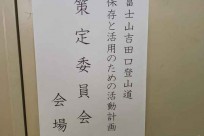 富士山吉田口登山道
保存と活用のための活動計画
策定委員会
会場